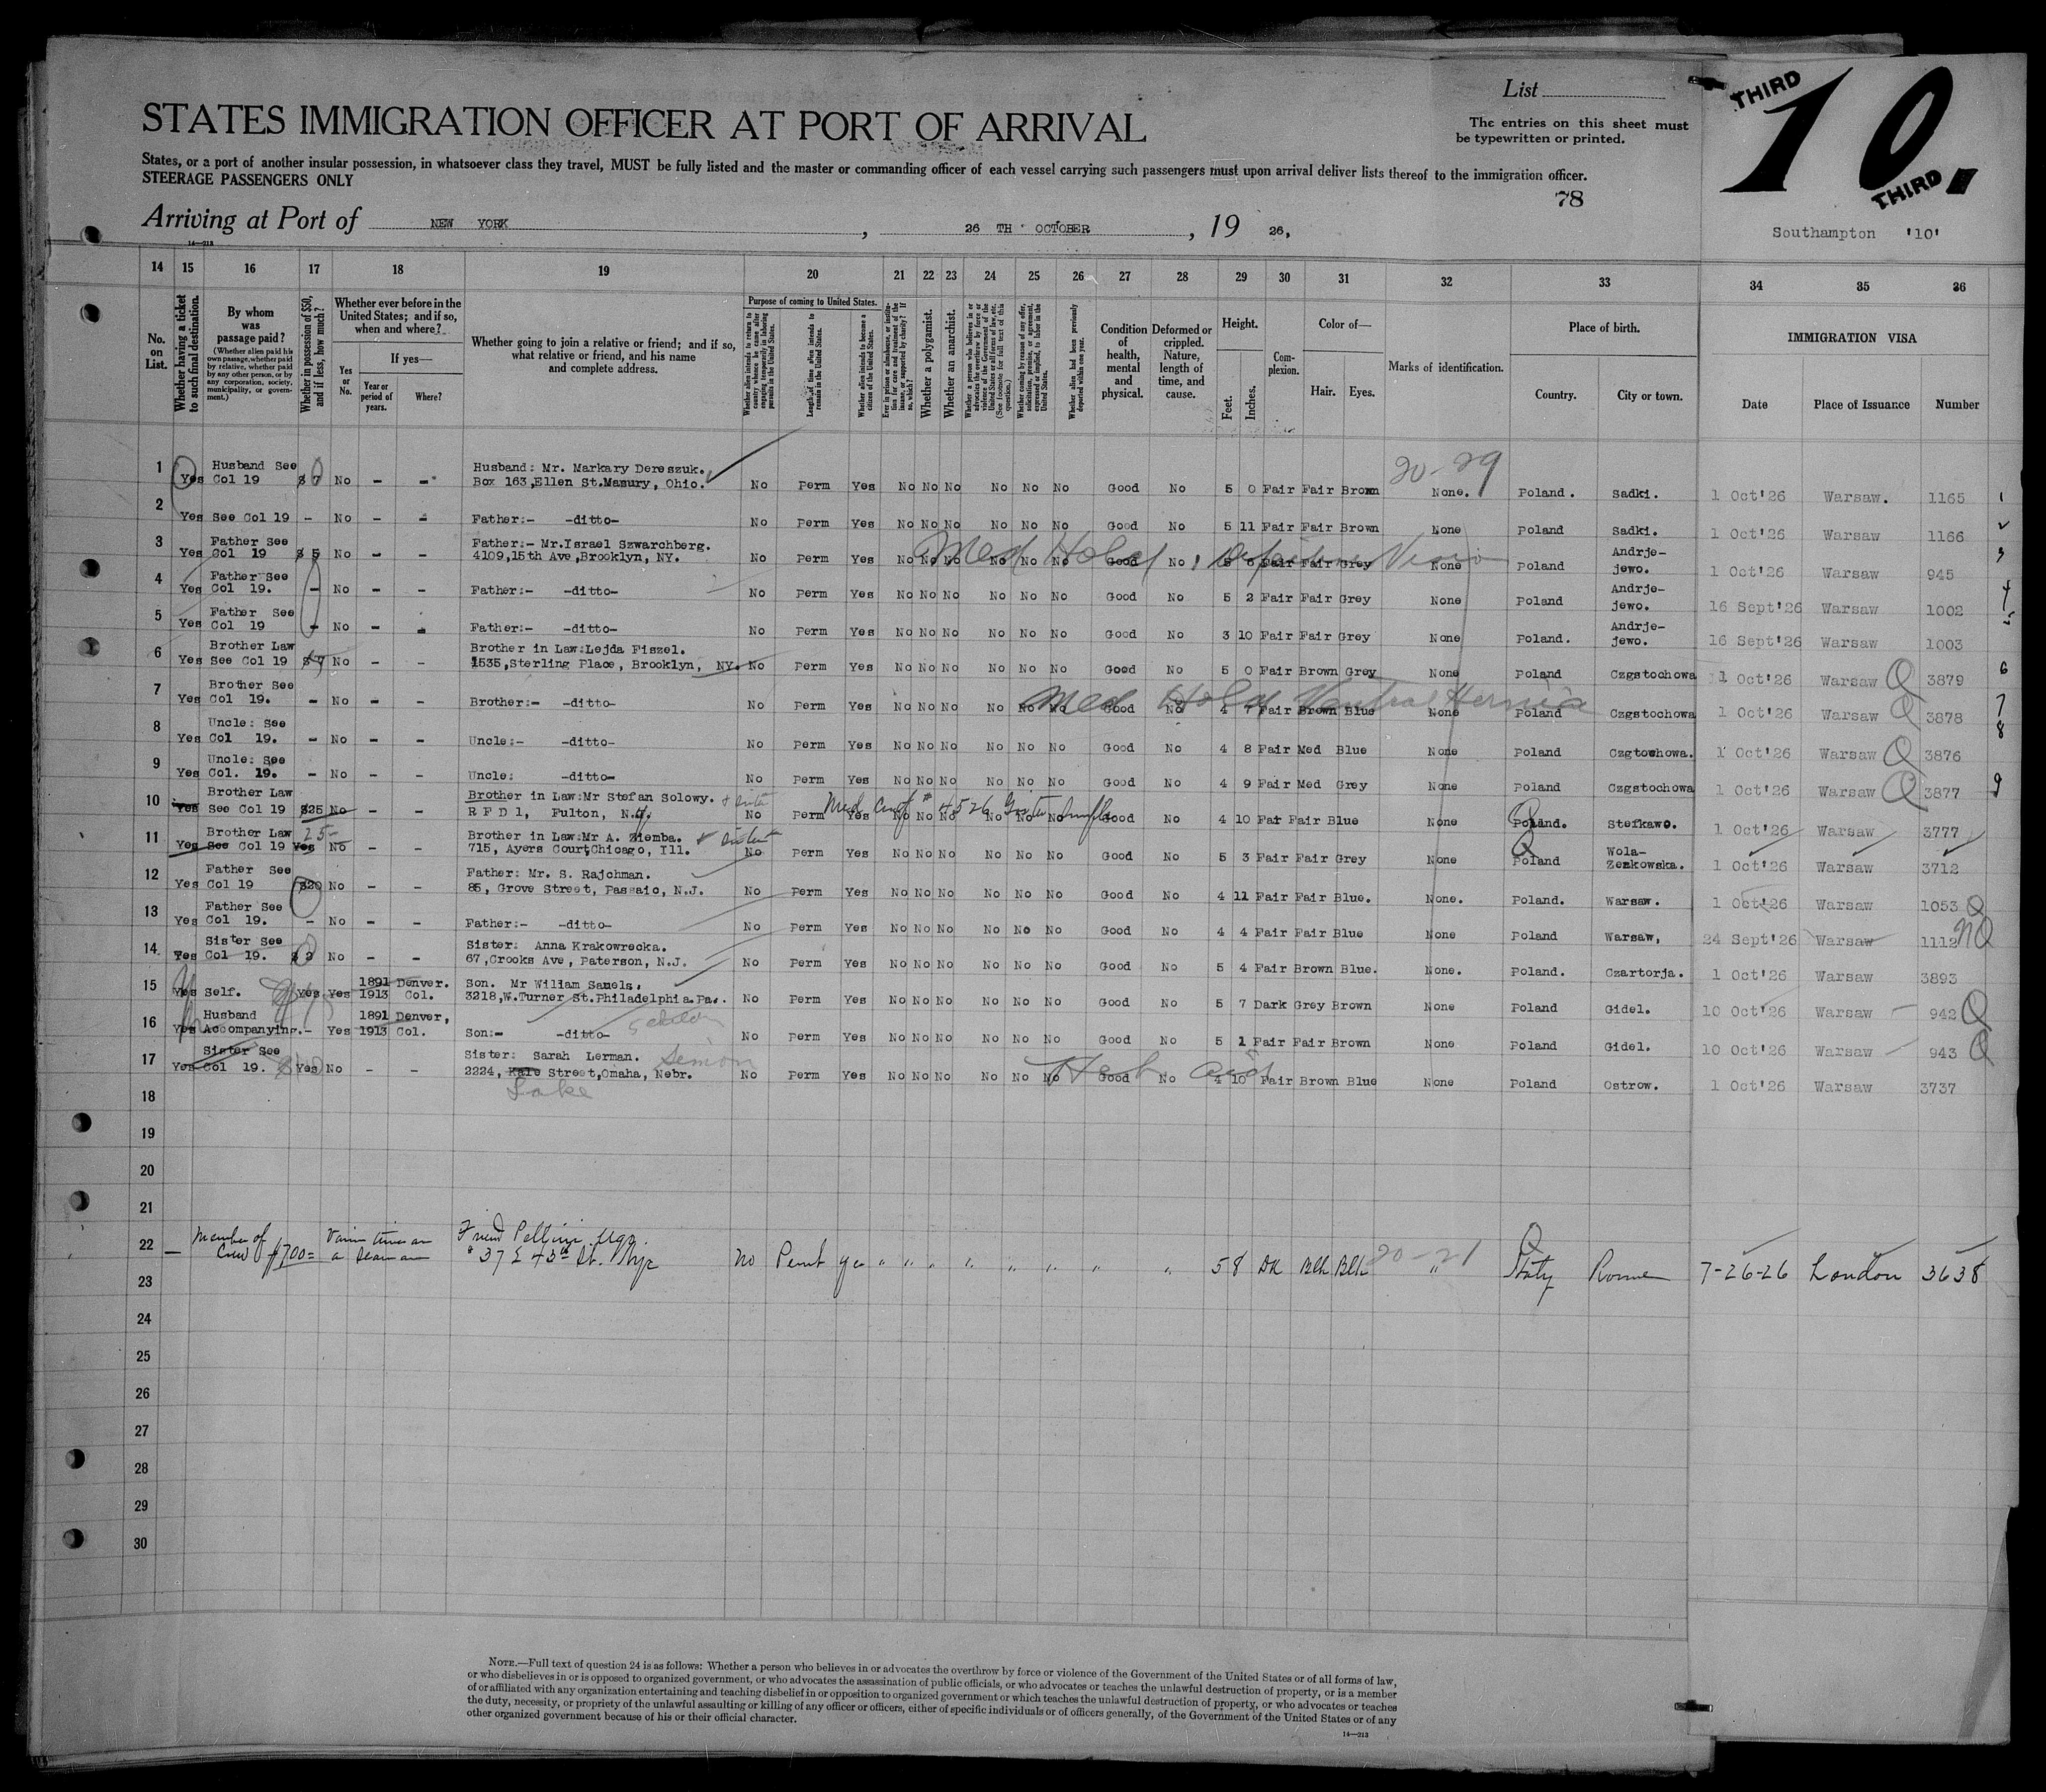 List
THIRD
10.
THIRD
The entries on this sheet must
be typewritten or printed.
STATES IMMIGRATION OFFICER AT PORT OF ARRIVAL
States, or a port of another insular possession, in whatsoever class they travel, MUST be fully listed and the master or commanding officer of each vessel carrying such passengers must upon arrival deliver lists thereof to the immigration officer.
STEERAGE PASSENGERS ONLY
78
Arriving at Port of NEW YORK, 26 TH OCTOBER, 19 26,
Southampton '10'
14—213
14 15 16 17 18 19 20 21 22 23 24 25 26 27 28 29 30 31 32 33 34 35 36
No. on List.
Whether having a ticket to such final destination.
By whom was passage paid?
(Whether alien paid his own passage, whether paid by relative, whether paid by any other person, or by any corporation, society, municipality, or government.)
Whether in possession of $50, and if less, how much?
Whether ever before in the United States; and if so, when and where?
Yes or No.
If yes—
Year or period of years.
Where?
Whether going to join a relative or friend; and if so, what relative or friend, and his name and complete address.
Purpose of coming to United States.
Whether alien intends to return to country whence he came after engaging temporarily in laboring pursuits in the United States.
Length of time alien intends to remain in the United States.
Whether alien intends to become a citizen of the United States.
Ever in prison or almshouse, or institution for care and treatment of the insane, or supported by charity? If so, which?
Whether a polygamist.
Whether an anarchist.
Whether a person who believes in or advocates the overthrow by force or violence of the Government of the United States or all forms of law, etc. (See footnote for full text of this question.)
Whether coming by reason of any offer, solicitation, promise, or agreement, expressed or implied, to labor in the United States.
Whether alien had been previously deported within one year.
Condition of health, mental and physical.
Deformed or crippled. Nature, length of time, and cause.
Height.
Feet. Inches.
Complexion.
Color of—
Hair. Eyes.
Marks of identification.
Place of birth.
Country. City or town.
IMMIGRATION VISA
Date Place of Issuance Number
20-29
1 Yes Husband See Col 19 $ 7 No - - Husband: Mr. Markary Dereszuk. Box 163,Ellen St.Masury, Ohio. No Perm Yes No No No No No No Good No 5 0 Fair Fair Brown None. Poland. Sadki. 1 Oct'26 Warsaw. 1165 1
2 Yes See Col 19 - No - - Father:- -ditto- No Perm Yes No No No No No No Good No 5 11 Fair Fair Brown None Poland Sadki. 1 Oct'26 Warsaw 1166 2
3 Yes Father See Col 19 $ 5 No - - Father:- Mr.Israel Szwarchberg. 4109,15th Ave,Brooklyn, NY. No Perm Yes No No No No No No Good No 5 6 Fair Fair Grey None Poland Andrje-jewo. 1 Oct'26 Warsaw 945 3
Med Hold, Defective Vision
4 Yes Father See Col 19. - No - - Father:- -ditto- No Perm Yes No No No No No No Good No 5 2 Fair Fair Grey None Poland Andrje-jewo. 16 Sept'26 Warsaw 1002 4
5 Yes Father See Col 19 - No - - Father:- -ditto- No Perm Yes No No No No No No Good No 3 10 Fair Fair Grey None Poland. Andrje-jewo. 16 Sept'26 Warsaw 1003 5
6 Yes Brother Law See Col 19 $ 7 No - - Brother in Law:Lejda Fiszel. 1535,Sterling Place, Brooklyn, NY. No Perm Yes No No No No No No Good No 5 0 Fair Brown Grey None Poland Czgstochowa 1 Oct'26 Warsaw Q 3879 6
7 Yes Brother See Col 19. - No - - Brother:- -ditto- No Perm Yes No No No No No No Good No 4 7 Fair Brown Blue None Poland Czgstochowa 1 Oct'26 Warsaw Q 3878 7
Med Hold Ventral Hernia
8 Yes Uncle: See Col 19. - No - - Uncle:- -ditto- No Perm Yes No No No No No No Good No 4 8 Fair Med Blue None Poland Czgtochowa. 1 Oct'26 Warsaw Q 3876 8
9 Yes Uncle: See Col. 19. - No - - Uncle: -ditto- No Perm Yes No No No No No No Good No 4 9 Fair Med Grey None Poland Czgstochowa 1 Oct'26 Warsaw Q 3877 9
10 Yes Brother Law See Col 19 $25 No - - Brother in Law:Mr Stefan Solowy. & sister R F D 1, Fulton, N.Y. No Perm Yes No No No No No No Good No 4 10 Fair Fair Blue None Poland. Stefkawo. 1 Oct'26 Warsaw 3777
Med Cert # 4526 Goiter Simple
11 Yes Brother Law See Col 19 25- Yes No - - Brother in Law:Mr A. Ziemba. & sister 715, Ayers Court,Chicago, Ill. No Perm Yes No No No No No No Good No 5 3 Fair Fair Grey None Q Poland Wola-Zenkowska. 1 Oct'26 Warsaw 3712
12 Yes Father See Col 19 $20 No - - Father: Mr. S. Rajchman. 85, Grove Street, Passaic, N.J. No Perm Yes No No No No No No Good No 4 11 Fair Fair Blue. None. Poland. Warsaw. 1 Oct'26 Warsaw 1053 Q
13 Yes Father See Col 19. - No - - Father:- -ditto- No Perm Yes No No No No No No Good No 4 4 Fair Fair Blue None Poland Warsaw, 24 Sept'26 Warsaw 1112 NQ
14 Yes Sister See Col 19. $ 2 No - - Sister: Anna Krakowrecka. 67,Crooks Ave, Paterson, N.J. No Perm Yes No No No No No No Good No 5 4 Fair Brown Blue. None. Poland. Czartorja. 1 Oct'26 Warsaw 3893
15 Yes Self. Yes Yes 1891 1913 Denver. Col. Son. Mr Wiliam Samels. 3218,W.Turner St.Philadelphia.Pa. No Perm Yes No No No No No No Good No 5 7 Dark Grey Brown None Poland Gidel. 10 Oct'26 Warsaw 942 Q
16 Yes Husband Accompanying. - Yes 1891 1913 Denver, Col. Son:- -ditto- 5 children No Perm Yes No No No No No No Good No 5 1 Fair Fair Brown None Poland Gidel. 10 Oct'26 Warsaw 943 Q
17 Yes Sister See Col 19. Yes No - - Sister: Sarah Lerman. 2224, Kare Street,Omaha, Nebr. No Perm Yes No No No No No No Good No 4 10 Fair Brown Blue None Poland Ostrow. 1 Oct'26 Warsaw 3737
Lake
18
19
20
21
22 — Member of Crew $700= Various times as a Seaman Friend 37 E 43rd St. Nyc No Permt yes " " " " " " " " 5 8 Dk Blk Blk 20-21 " Q Italy Rome 7-26-26 London 3638
23
24
25
26
27
28
29
30
NOTE.—Full text of question 24 is as follows: Whether a person who believes in or advocates the overthrow by force or violence of the Government of the United States or of all forms of law,
or who disbelieves in or is opposed to organized government, or who advocates the assassination of public officials, or who advocates or teaches the unlawful destruction of property, or is a member
of or affiliated with any organization entertaining and teaching disbelief in or opposition to organized government or which teaches the unlawful destruction of property, or who advocates or teaches
the duty, necessity, or propriety of the unlawful assaulting or killing of any officer or officers, either of specific individuals or of officers generally, of the Government of the United States or of any
other organized government because of his or their official character.
14—213